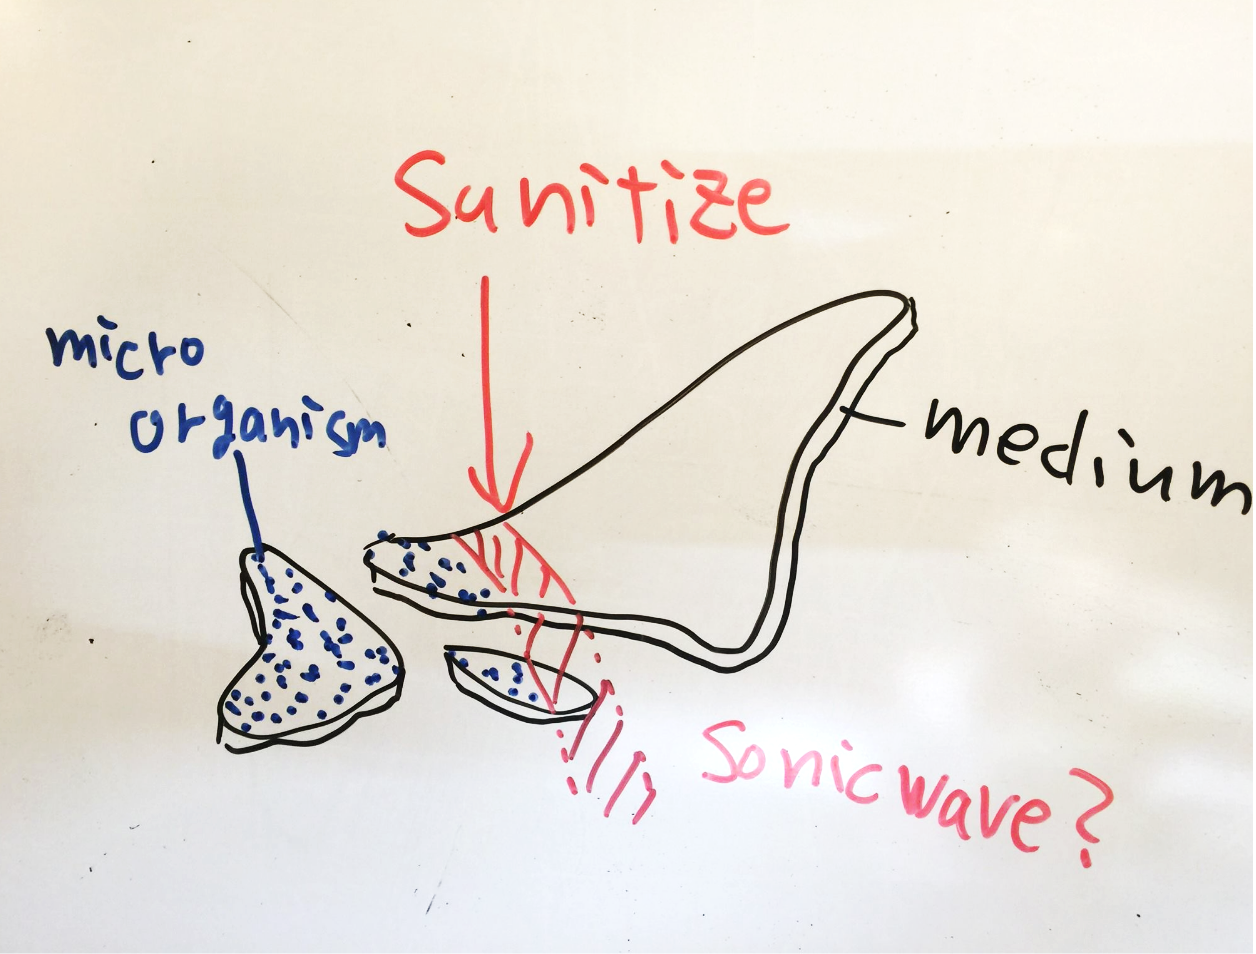 Sanitize
micro
organism
medium
Sonic wave?